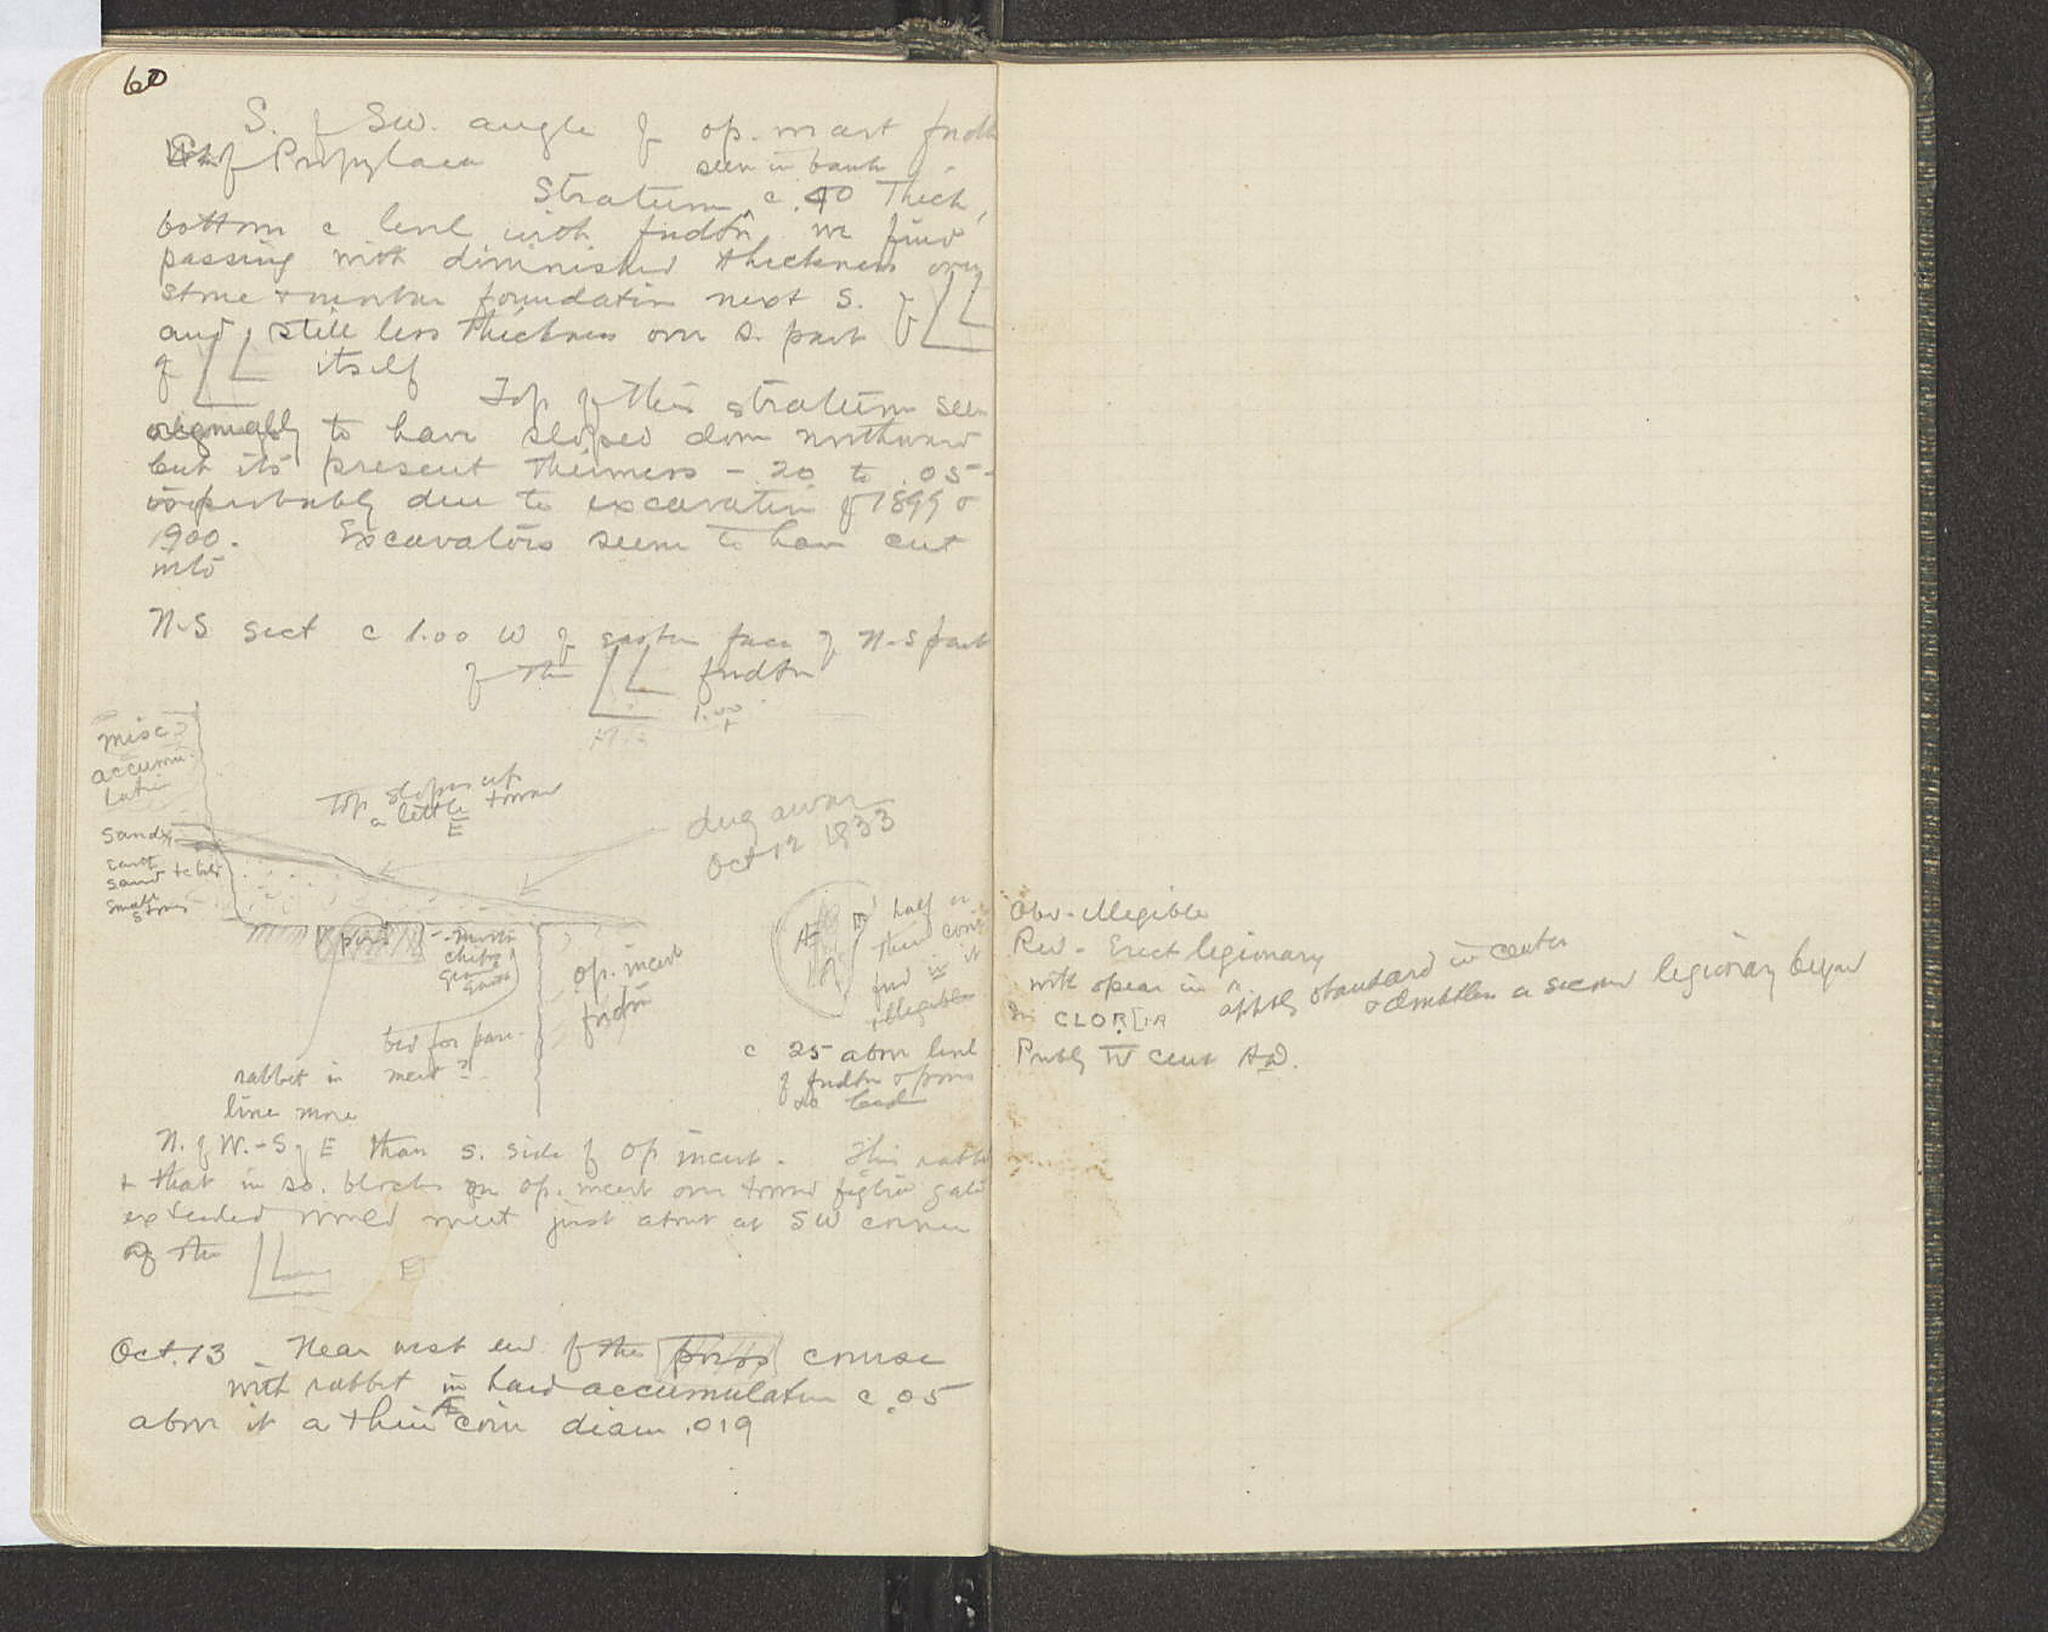 60
S. of SW. angle of op. incert fndtn
of Propylaea seen in bank
Stratum c .40 thick,
bottom c level with fndtn, we find
passing with diminished thickness over
stone & mortar foundation next S. of
and still less thickness over S. part
of itself
Top of this stratum seems
originally to have sloped down northward
but its present thinness - .20 to .05 -
is probably due to excavation of 1899 &
1900. Excavators seem to have cut
into
N-S sect c 1.00 W of eastern face of N-S part
of the fndtn
1.00
+
misc
accumu-
lation
Top slopes up
a little toward
E
dug away
Oct 12 1933
sand
earth
sand + tile
small
stones
poros
chips
op. incert
fndtn
bed for pave-
ment?
rabbet in
line more
half
coin
it
illegible
c 25 above level
of fndtn & poros
N. of W. - S of E than S. side of op incert. This rabbet
+ that in so. blocks on op. incert over toward gate
extended would meet just about at SW corner
of the
E
Oct. 13 Near west end of the poros course
with rabbet in hard accumulation c .05
above it a thin Æ coin diam .019
Obv - Illegible
Rev - Erect legionary
with spear in r. apptly standard in center
& doubtless a second legionary beyond
In CLOR[IA
Probly IV cent A.D.